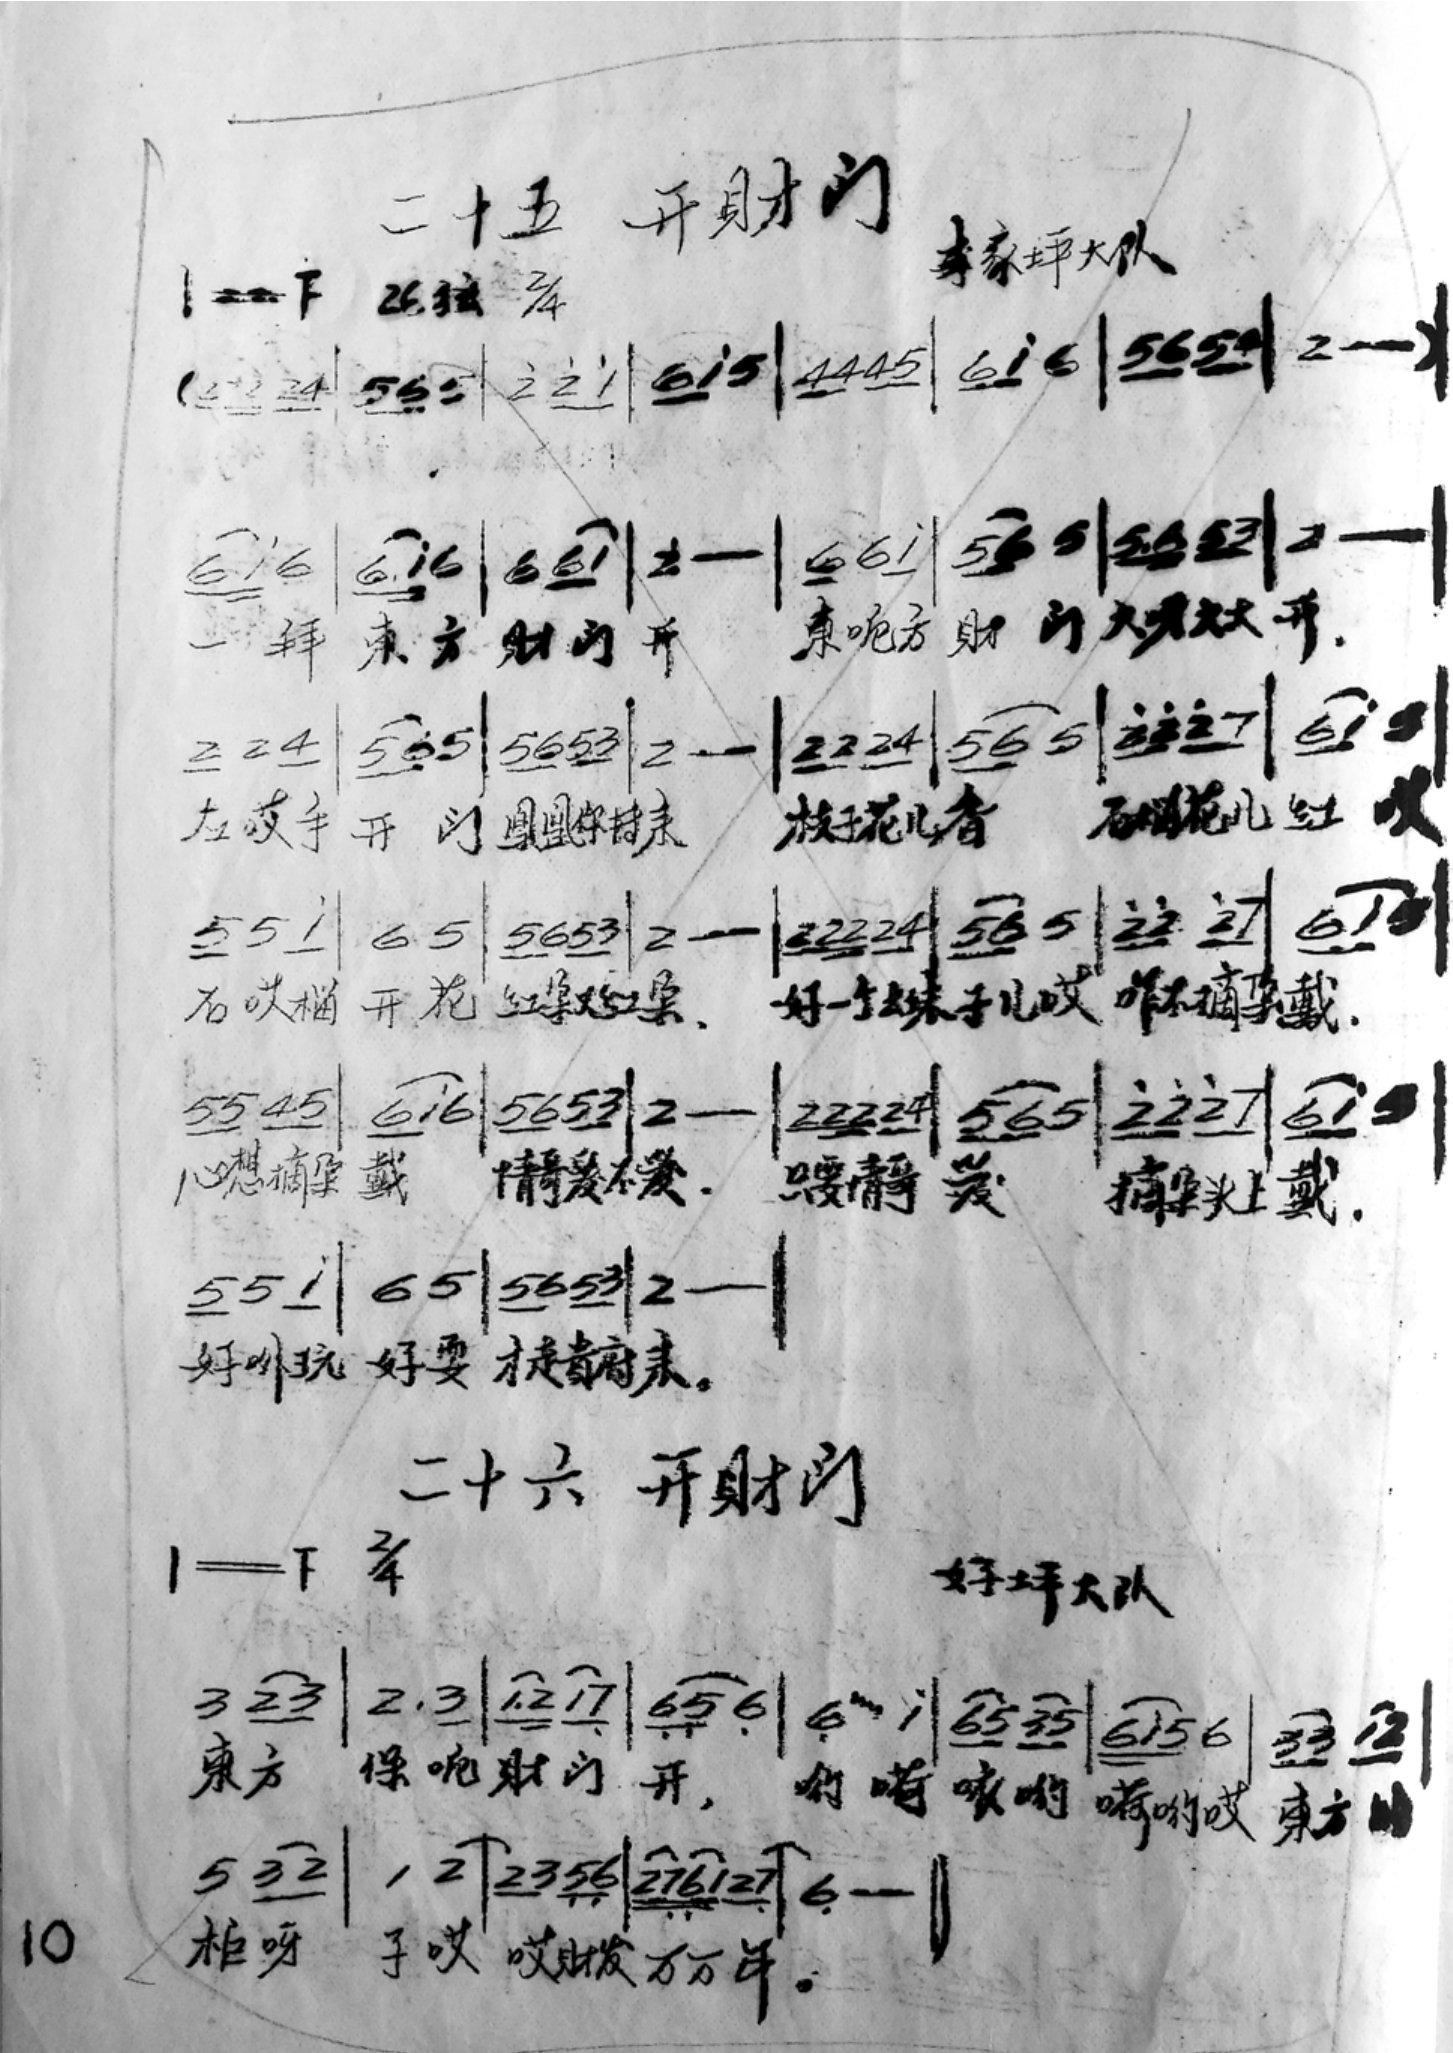 二十五 开財门
李家坪大队
1=F 26弦 2/4
(2224 | 565 | 2̇ 2̇1̇ | 61̇5 | 4445 | 61̇6 | 5654 | 2—)
61̇6 | 6.1̇6 | 6 61̇ | 2— | 6 61̇ | 56 5 | 5653 | 2—
一拜 東方 财门开 東呢方 財门 大大开.
2 2 4 | 565 | 5653 | 2— | 2224 | 56 5 | 2̇2̇2̇7 | 61̇5
左哎手 开门 来 枝子花儿者 石榴花儿红 哎
5 5 1̇ | 6 5 | 5653 | 2— | 222224 | 56 5 | 2̇2̇ 2̇7 | 61̇5
石哎榴 开花 红朵对红朵. 好一妹子儿哎 咋不摘朵戴.
5545 | 61̇6 | 5653 | 2— | 222224 | 565 | 2̇2̇2̇7 | 61̇5
心想摘朵戴 情哥爱不爱. 只要情哥爱 摘朵头上戴.
5 5 1̇ | 6 5 | 5653 | 2— |
好外玩 好耍 才走貴府来。
二十六 开財门
1=F 2/4
好坪大队
3 23 | 2.3 | 1.2 17 | 65 6 | 6 i | 65 35 | 6i56 | 33 12 |
東方 保呢 财门 开, 哟嗬 咳哟 嗬哟哎 東方
5 32 | 1 2 | 2356 | 276127 | 6— |
柜呀 子哎 哎财发 万万年。
10